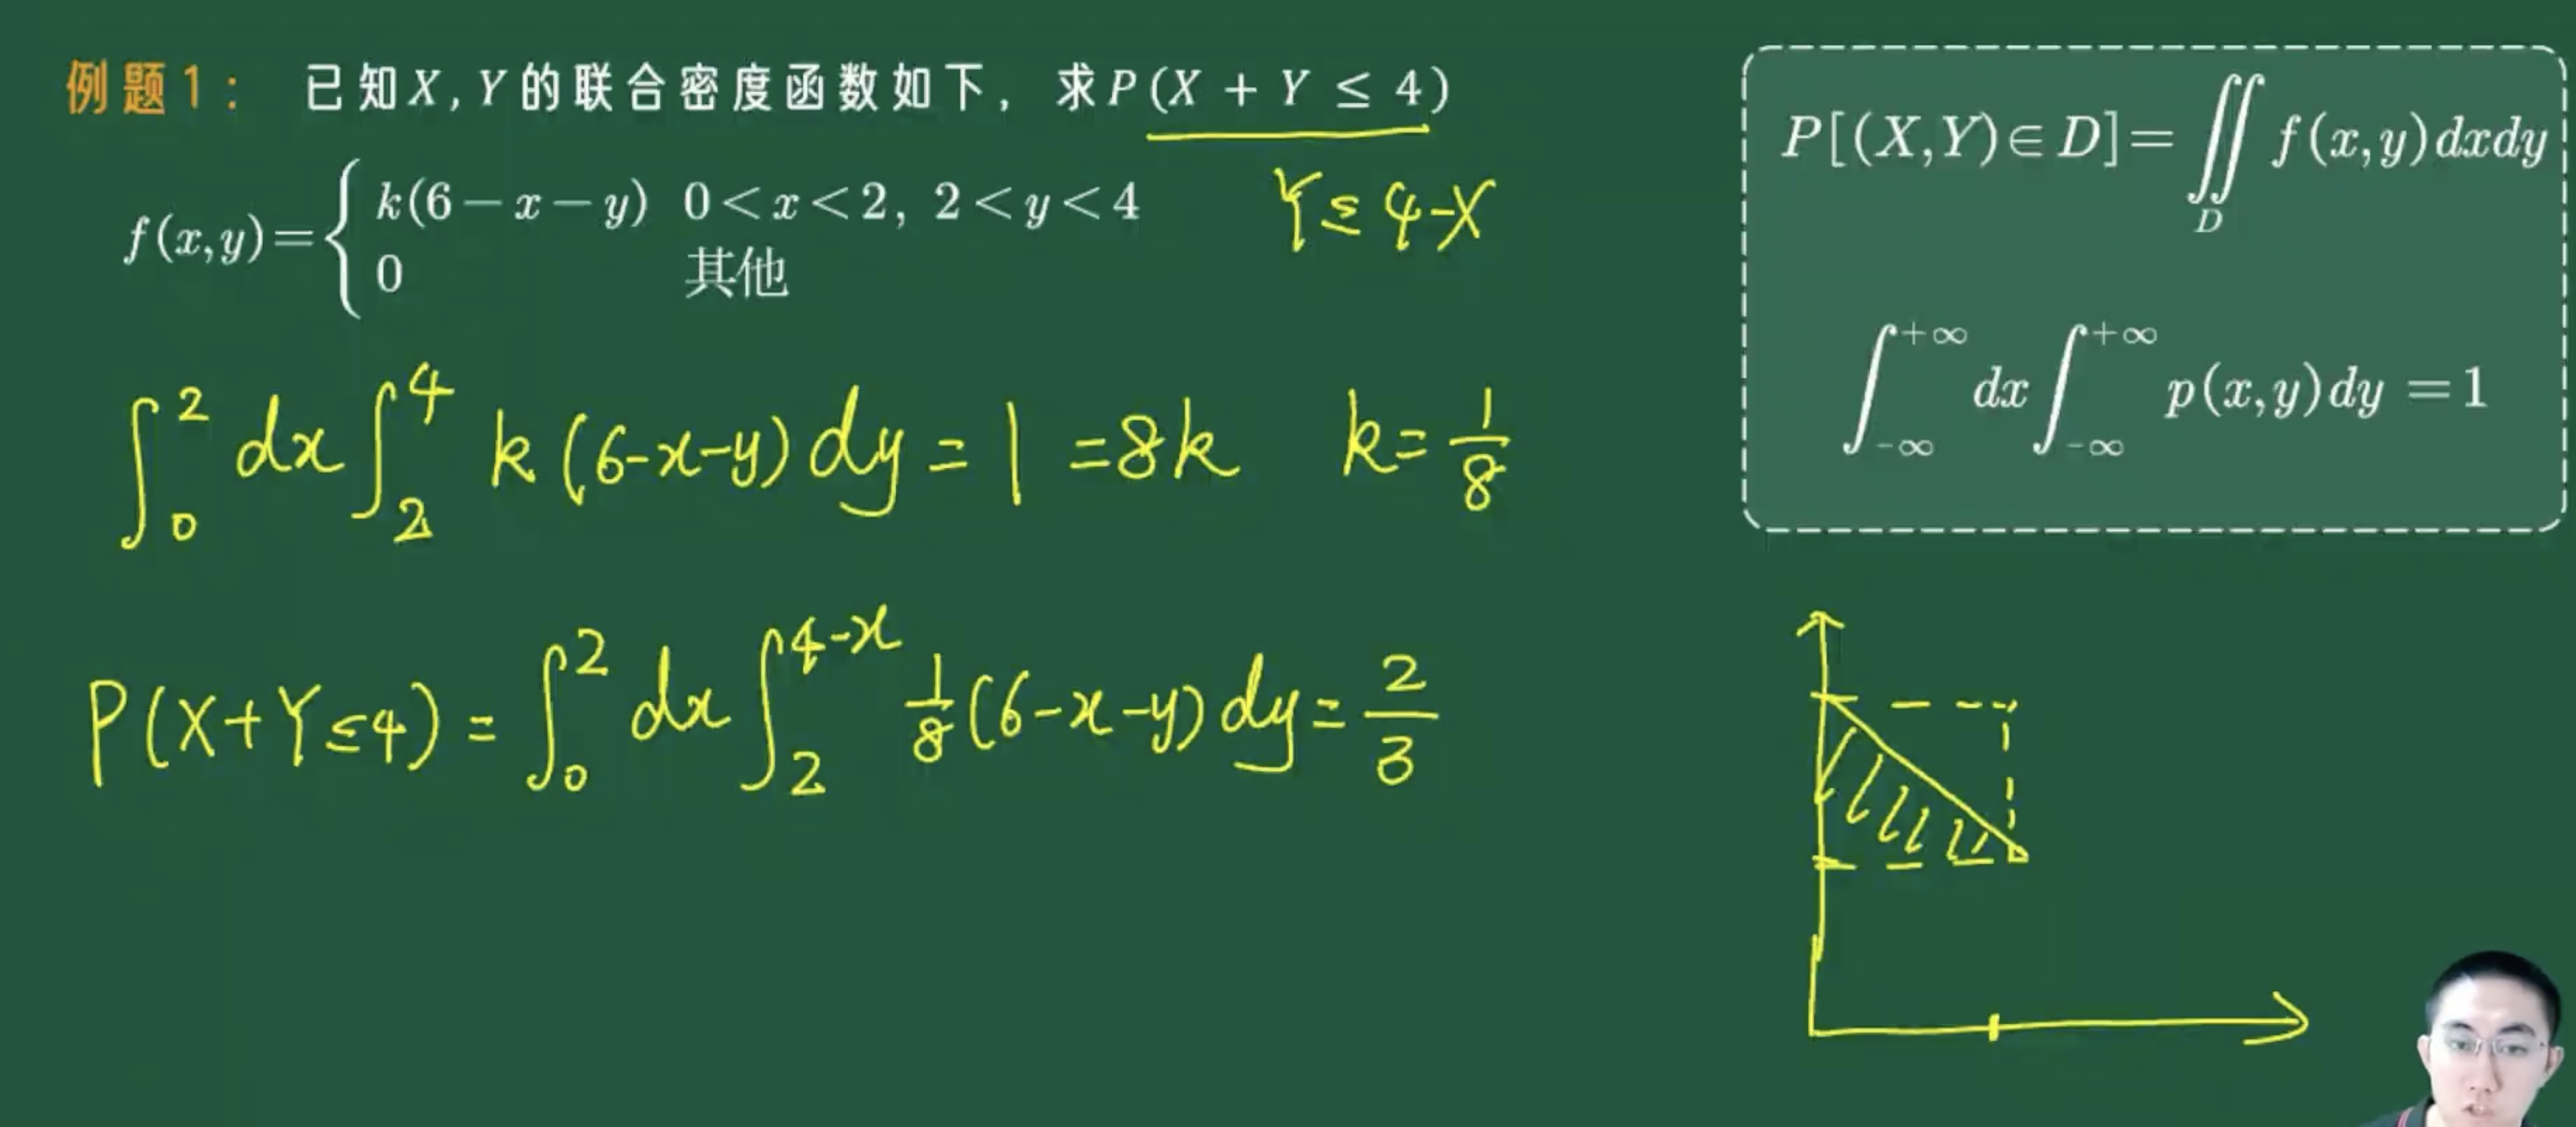 例题1： 已知X，Y的联合密度函数如下，求P(X + Y ≤ 4)
f(x,y)={ k(6－x－y) 0<x<2, 2<y<4
0 其他
Y≤4-X
∫₀² dx ∫₂⁴ k(6-x-y)dy = 1 = 8k k=1/8
P(X+Y≤4) = ∫₀² dx ∫₂^(4-x) 1/8(6-x-y)dy = 2/3
P[(X,Y)∈D]=∬_D f(x,y)dxdy
∫_{-∞}^{+∞} dx ∫_{-∞}^{+∞} p(x,y)dy=1